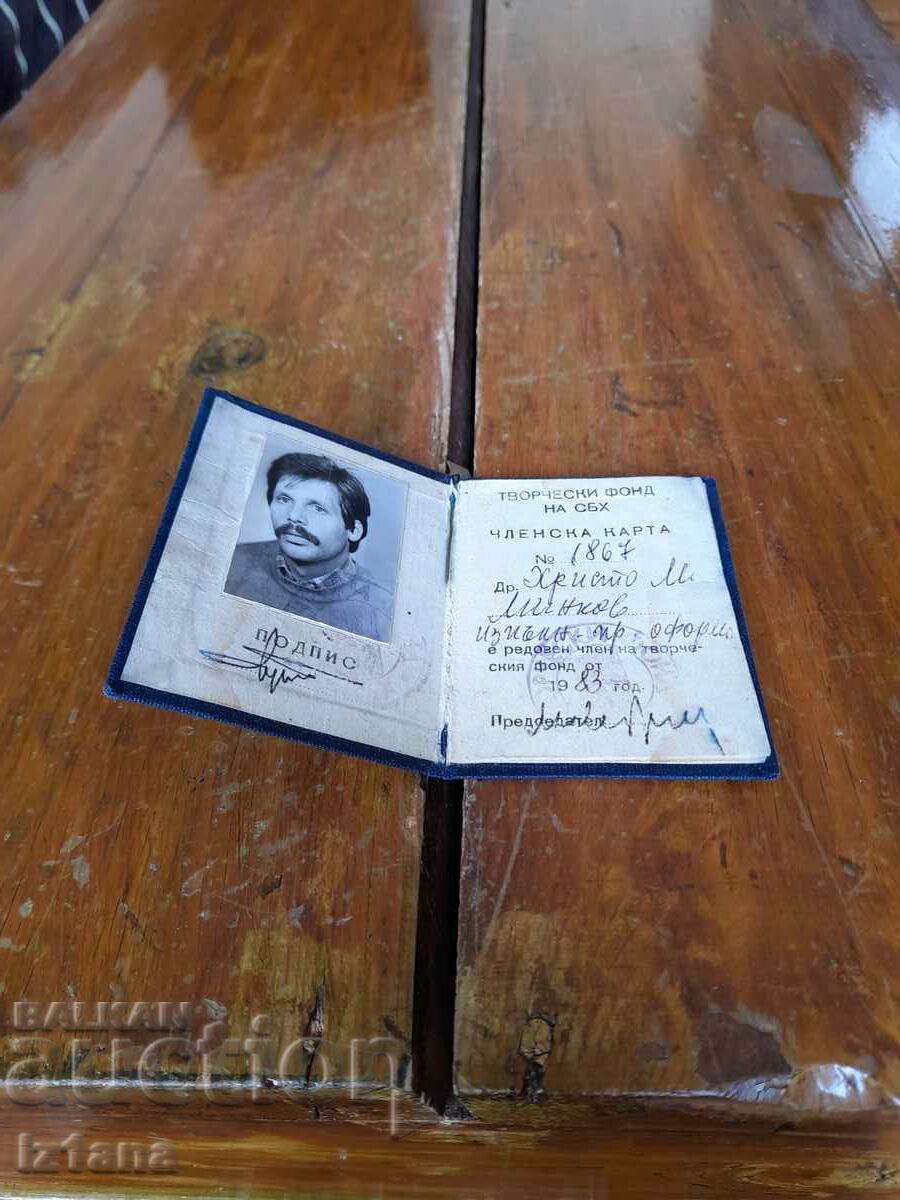 ПОДПИС
ТВОРЧЕСКИ ФОНД
НА СБХ
ЧЛЕНСКА КАРТА
№ 1867
Др. Христо М.
Минков
е редовен член на творче-
ския фонд от
1983 год.
Председател:
BALKAN
auction
iztana